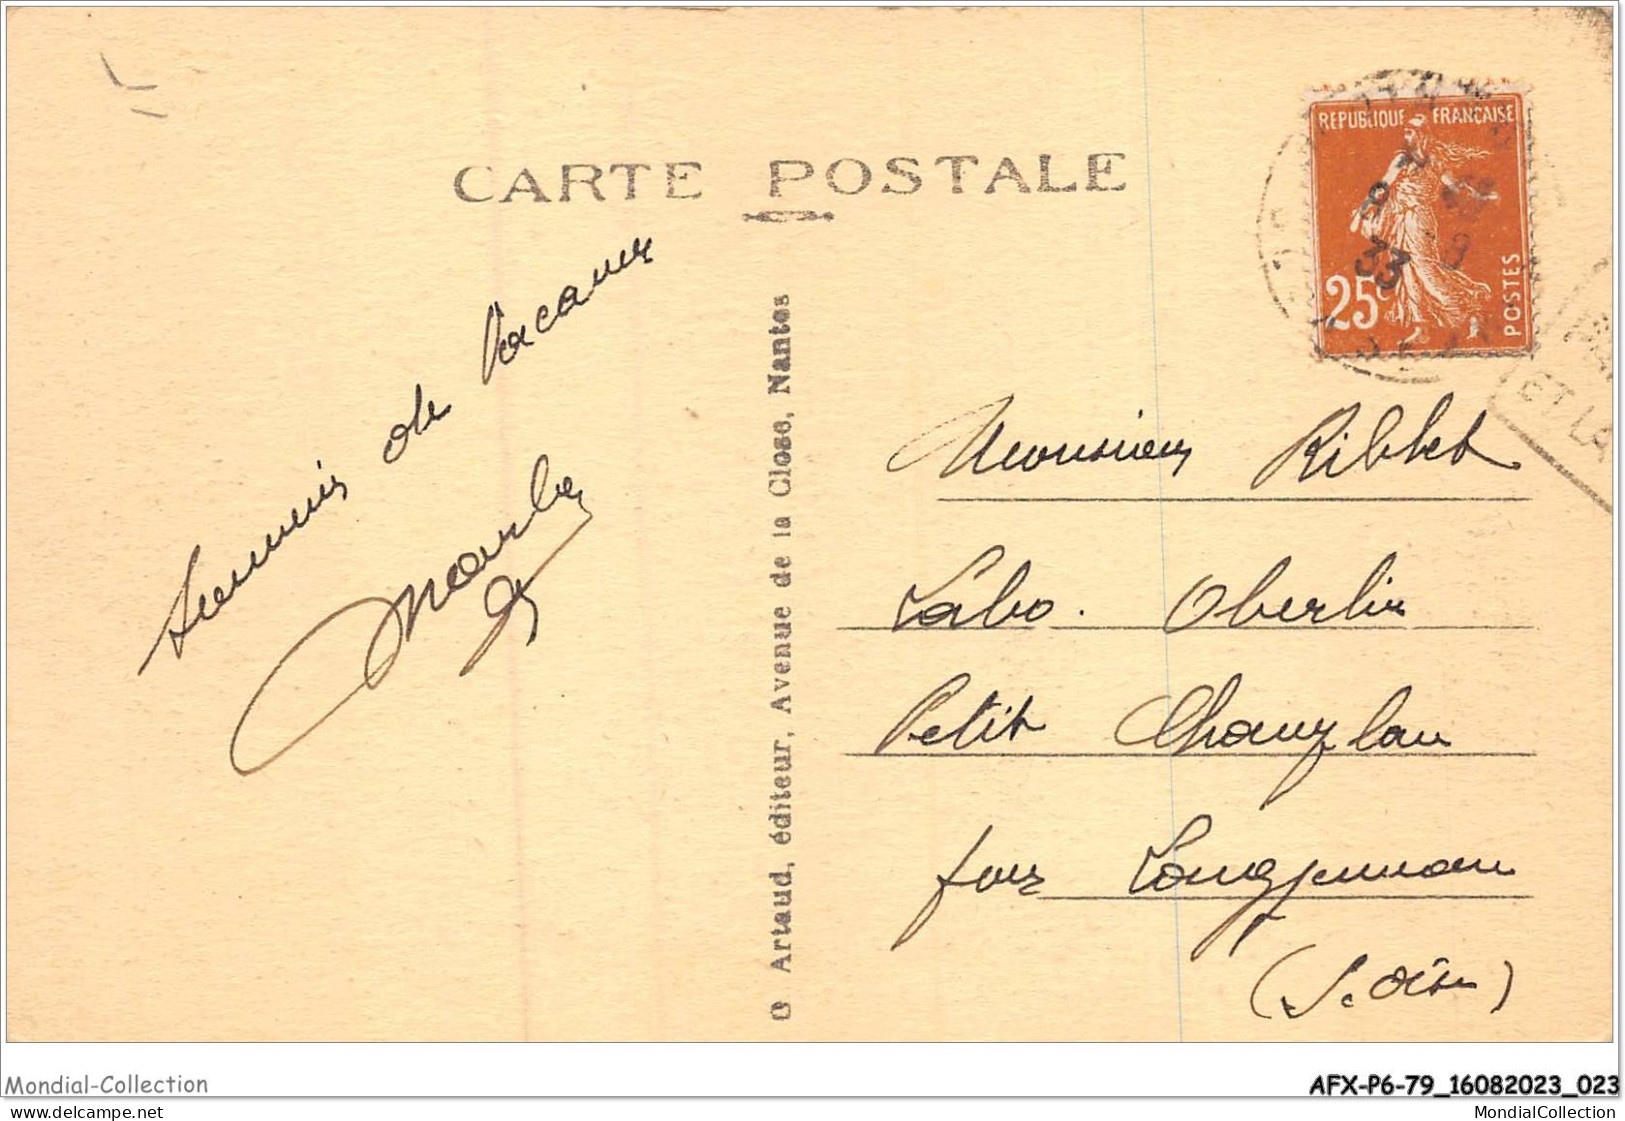 CARTE POSTALE
REPUBLIQUE FRANÇAISE
25c
POSTES
9
33
ET LA
de Vacances
Artaud, éditeur, Avenue de la Close, Nantes
Monsieur Ribbet
Labo. Oberlin
Petit Champlan
par Longjumeau
(S. Oise)
Mondial-Collection
AFX-P6-79_16082023_023
www.delcampe.net
MondialCollection